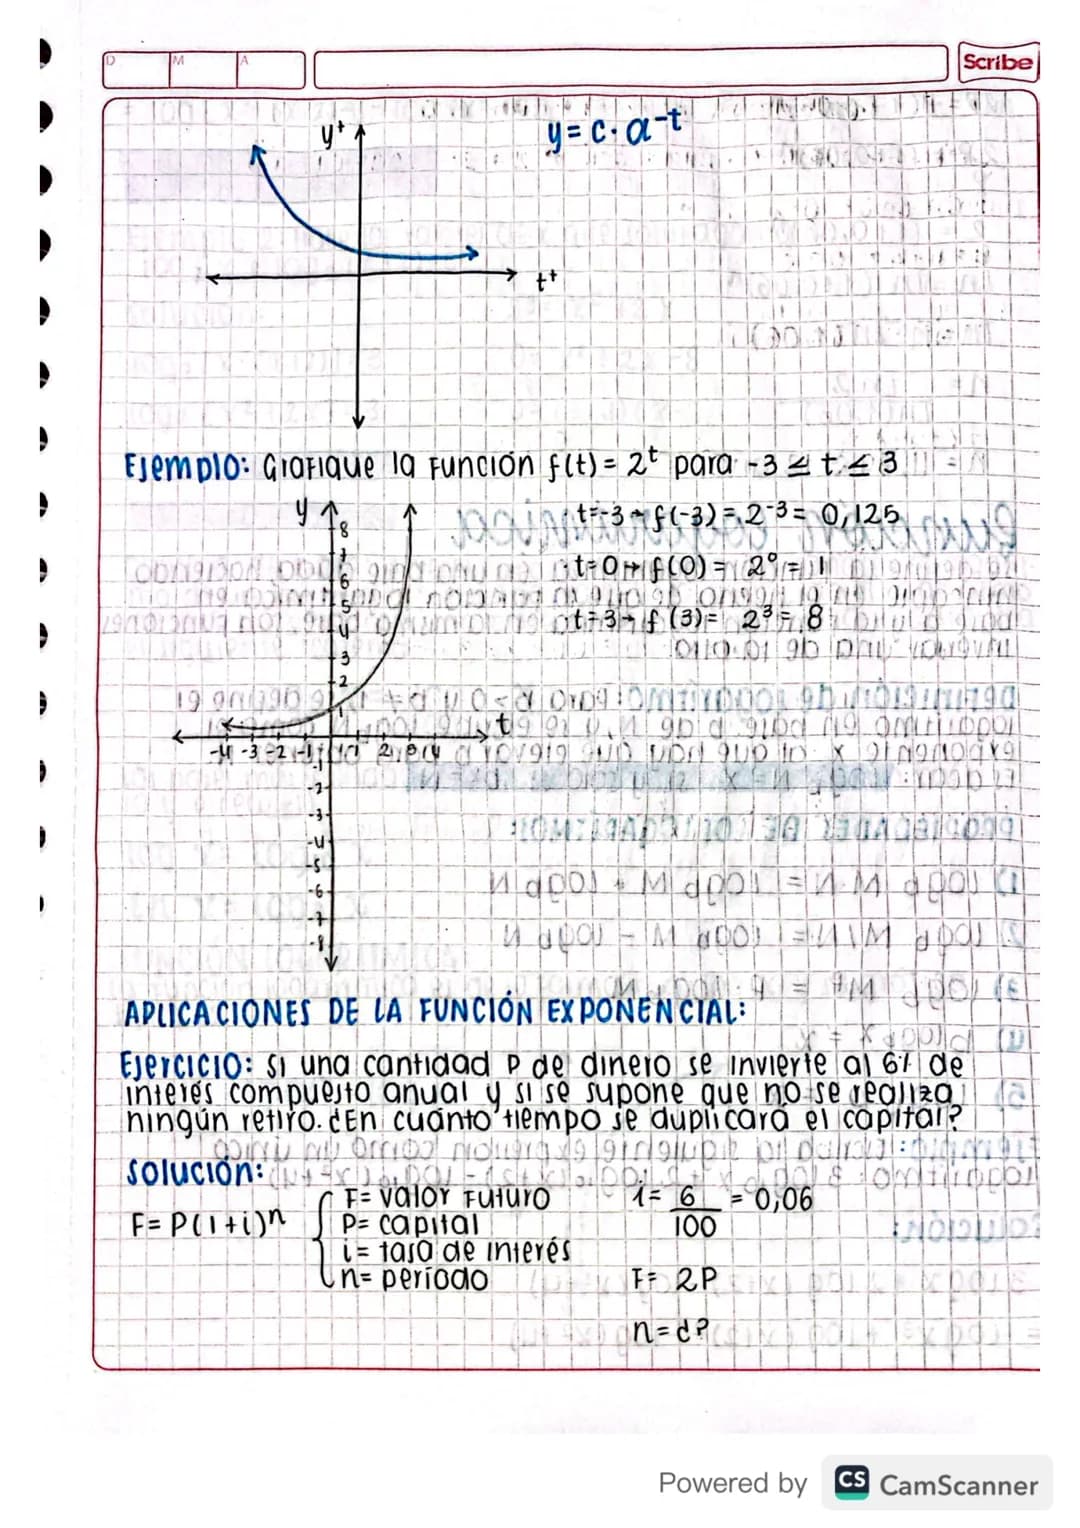 D M A
Scribe
y⁺
y = c · a⁻ᵗ
t⁺
Ejemplo: Grafique la función f(t) = 2ᵗ para -3 ≤ t ≤ 3
y
8
7
6
5
4
3
2
1
t = -3 → f(-3) = 2⁻³ = 0,125
t = 0 → f(0) = 2⁰ = 1
t = 3 → f(3) = 2³ = 8
t
-4 -3 -2 -1 1 2 3 4
-1
-2
-3
-4
-5
-6
-7
-8
APLICACIONES DE LA FUNCIÓN EXPONENCIAL:
Ejercicio: si una cantidad P de dinero se invierte al 6% de
interés compuesto anual y si se supone que no se realiza
ningún retiro. ¿En cuánto tiempo se duplicará el capital?
Solución:
F = P(1+i)ⁿ
F = valor Futuro
P = capital
i = tasa de interés
n = período
i = 6/100 = 0,06
F = 2P
n = ¿?
Powered by CS CamScanner